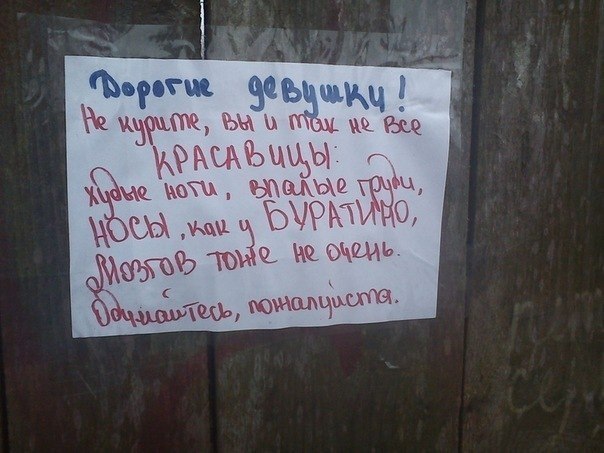 Дорогие девушки!
Не курите, вы и так не все
КРАСАВИЦЫ:
худые ноги, впалые груди,
НОСЫ, как у БУРАТИНО,
Мозгов тоже не очень.
Одумайтесь, пожалуйста.